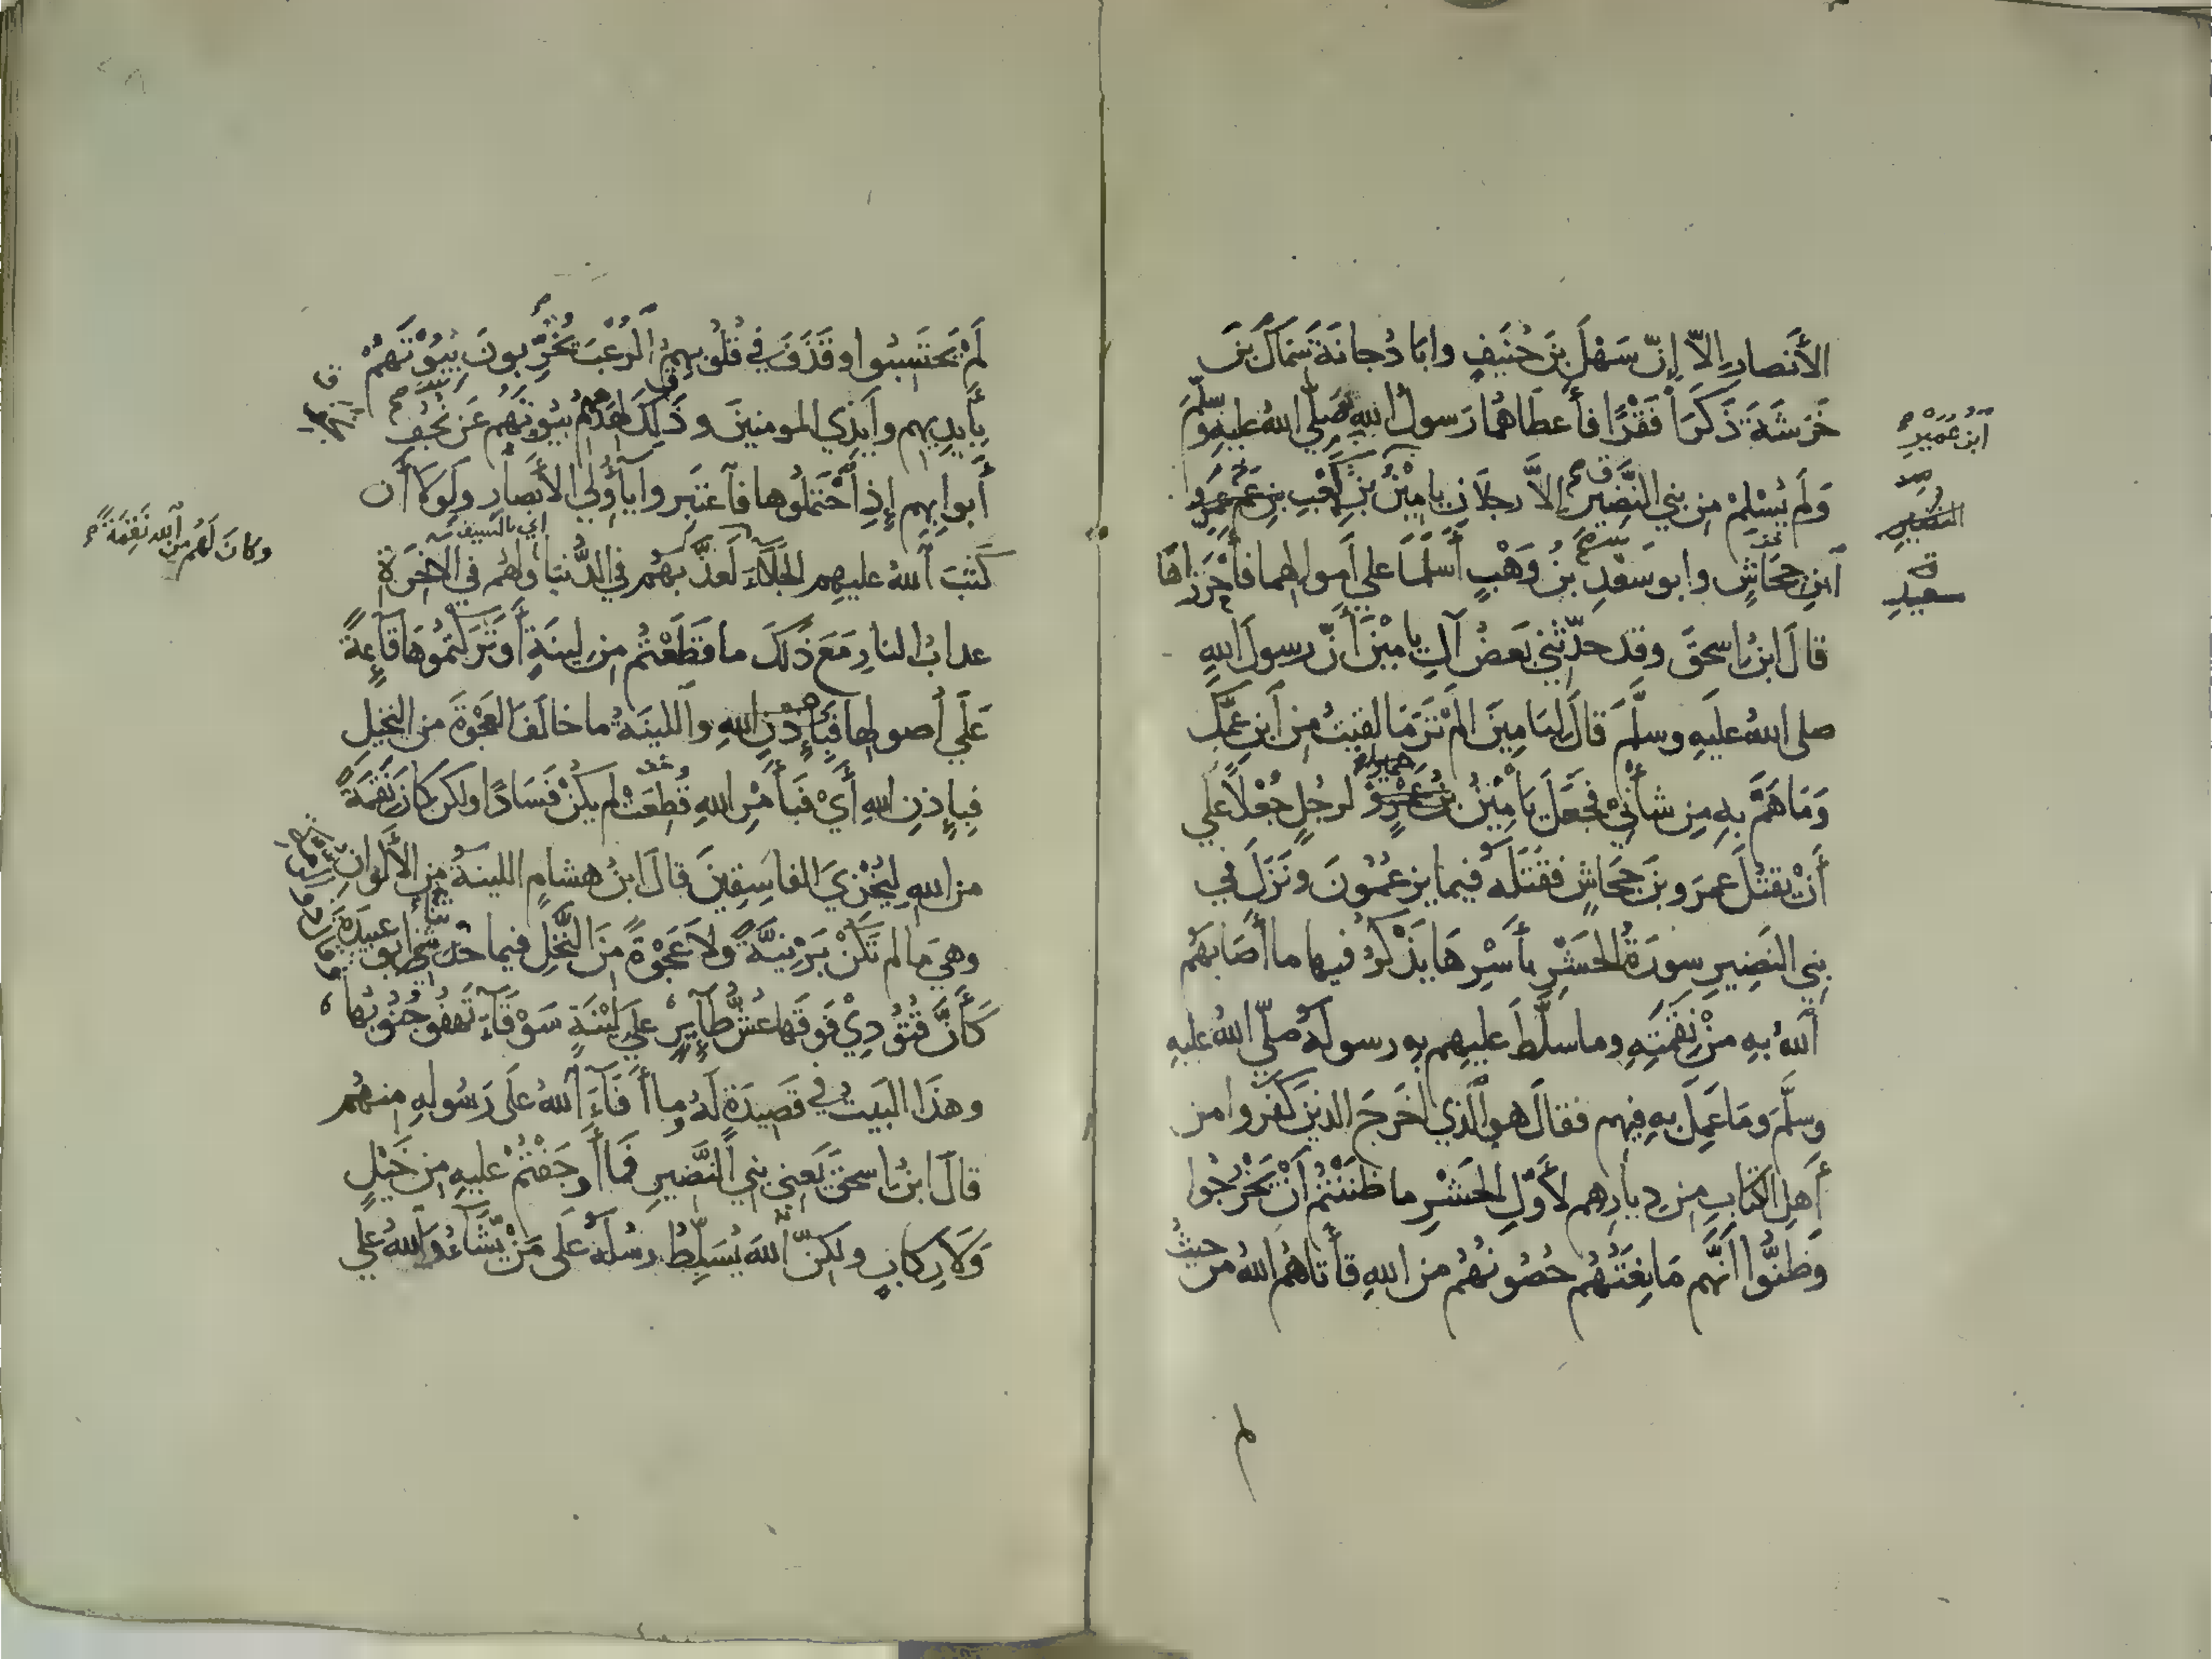 الأَنصارِ إلاّ إنّ سَهْلَ بنَ حُنَيفٍ وابَا دُجانَةَ سِمَاكَ بنَ
خَرَشَةَ ذَكَرَا فَقْرًا فأَعطَاهُمَا رَسولُ اللهِ صَلّي اللهُ عليهِ وسلّمَ
وَلَم يُسْلِمْ مِن بني النَّضِيرِ إلاَّ رجلاَنِ يامِيْنُ بنُ كَعْبِ بنِ عَمْرِو
ابنُ عُمَيْرِ
النضير
سعيدِ
ابنِ جِحَاشٍ وابو سَعْدِ بنُ وَهْبٍ أَسْلَمَا علي أَموالِهما فأَحْرَزَاهَا
قالَ ابنُ اسحقَ وقد حدّثني بَعضُ آلِ يامِيْنَ أنّ رسولَ اللهِ
صلى اللهُ علَيهِ وسلّمَ قالَ ليَامِينَ الَمْ تَرَ مَا لقيتُ مِن ابنِ عمِّكَ
وَمَا هَمَّ بهِ مِن شأْنِيْ فجَعَلَ يَامِيْنُ بنُ لرجُلٍ جُعْلاً علي
أَنْ يقتُلَ عمرَو بنَ جِحَاشٍ فقتَلَهُ فيما يزعُمُونَ ونَزَلَ في
بني النَضِيرِ سورَةُ الحَشْرِ بأَسْرِهَا يَذْكُرُ فيها ما أَصَابَهُم
اللهُ بهِ مِنْ نِقْمَتِهِ وما سلَّطَ عليهِم بهِ رسولَهُ صلّي اللهُ عليهِ
وسلَّمَ ومَا عَمِلَ بهِ فيهم فقالَ هو الّذي أَخرَجَ الذينَ كَفَروا من
أَهلِ الكتابِ مِن ديارِهِم لأَوّلِ الحَشْرِ ما ظَنَنْتُمْ أَنْ يَخْرُجُوا
وَظَنُّوا أَنَّهُم مَانِعَتُهُم حُصُونُهُم من اللهِ فأَتاهُم اللهُ من حيثُ
لم
لَمْ يَحتَسِبُوا وقَذَفَ في قُلُوبِهِمُ الرُعْبَ يُخَرِّبونَ بُيُوْتَهُمْ
بِأَيديهِم وأَيْدِي المومنينَ وذَلِكَ لهَدْمِهم بُيُوتَهُم عَن نُجُفِ
أَبوابِهِم إِذِ احْتَمَلُوها فاعتَبِروا يآ أُولِي الأَبْصَارِ ولَولا أَن
وكانَ لَهُم مِن اللهِ نَقِمَةً
اي بالسيف
كتَبَ اللهُ عليهِم الجَلآءَ لَعَذَّبَهُم في الدُّنيا ولهُم في الاخِرَةِ
عذابُ النارِ مَعَ ذَلكَ ما قَطَعْتُم مِن لِينَةٍ أَو تَرَكتُمُوهَا قآئِمَةً
عَلَي أُصولِها فبِإِذْنِ اللهِ واللينَةُ ما خالَفَ العَجْوَةَ من النخِيلِ
فبِإِذنِ اللهِ أَيْ فَبأَمْرِ اللهِ قُطِعَتْ لم يكُنْ فَسَادًا ولكن كانَ نَقْمَةً
من اللهِ لِيُخْزِيَ الفاسِقِينَ قالَ ابنُ هشامٍ اللينةُ مِن الأَلوانِ
وهيَ ما لم تَكُنْ بَرْنِيَّةً ولا عَجْوَةً مِنَ النَّخْلِ فيما حدثنا ابو عبيدَةَ
كَأَنَّ قُتُوْدِيْ فَوقَها عُشُّ طآيِرٍ علي لِيْنَةٍ سَوْقَآءَ تَهْفُو جُنُوْبُها
وهذَا البَيتُ في قَصِيدَةٍ لَهُ وما أَفَآءَ اللهُ علَى رَسُولِهِ منهُم
قالَ ابنُ اسحقَ يَعني بني النَّضِيرِ فَمَا أَوجَفْتُمْ عليهِ مِن خَيْلٍ
وَلَا رِكابٍ ولكِنّ اللهَ يُسَلِّطُ رسُلَهُ علَى مَنْ يَّشَآءُ واللهُ علي